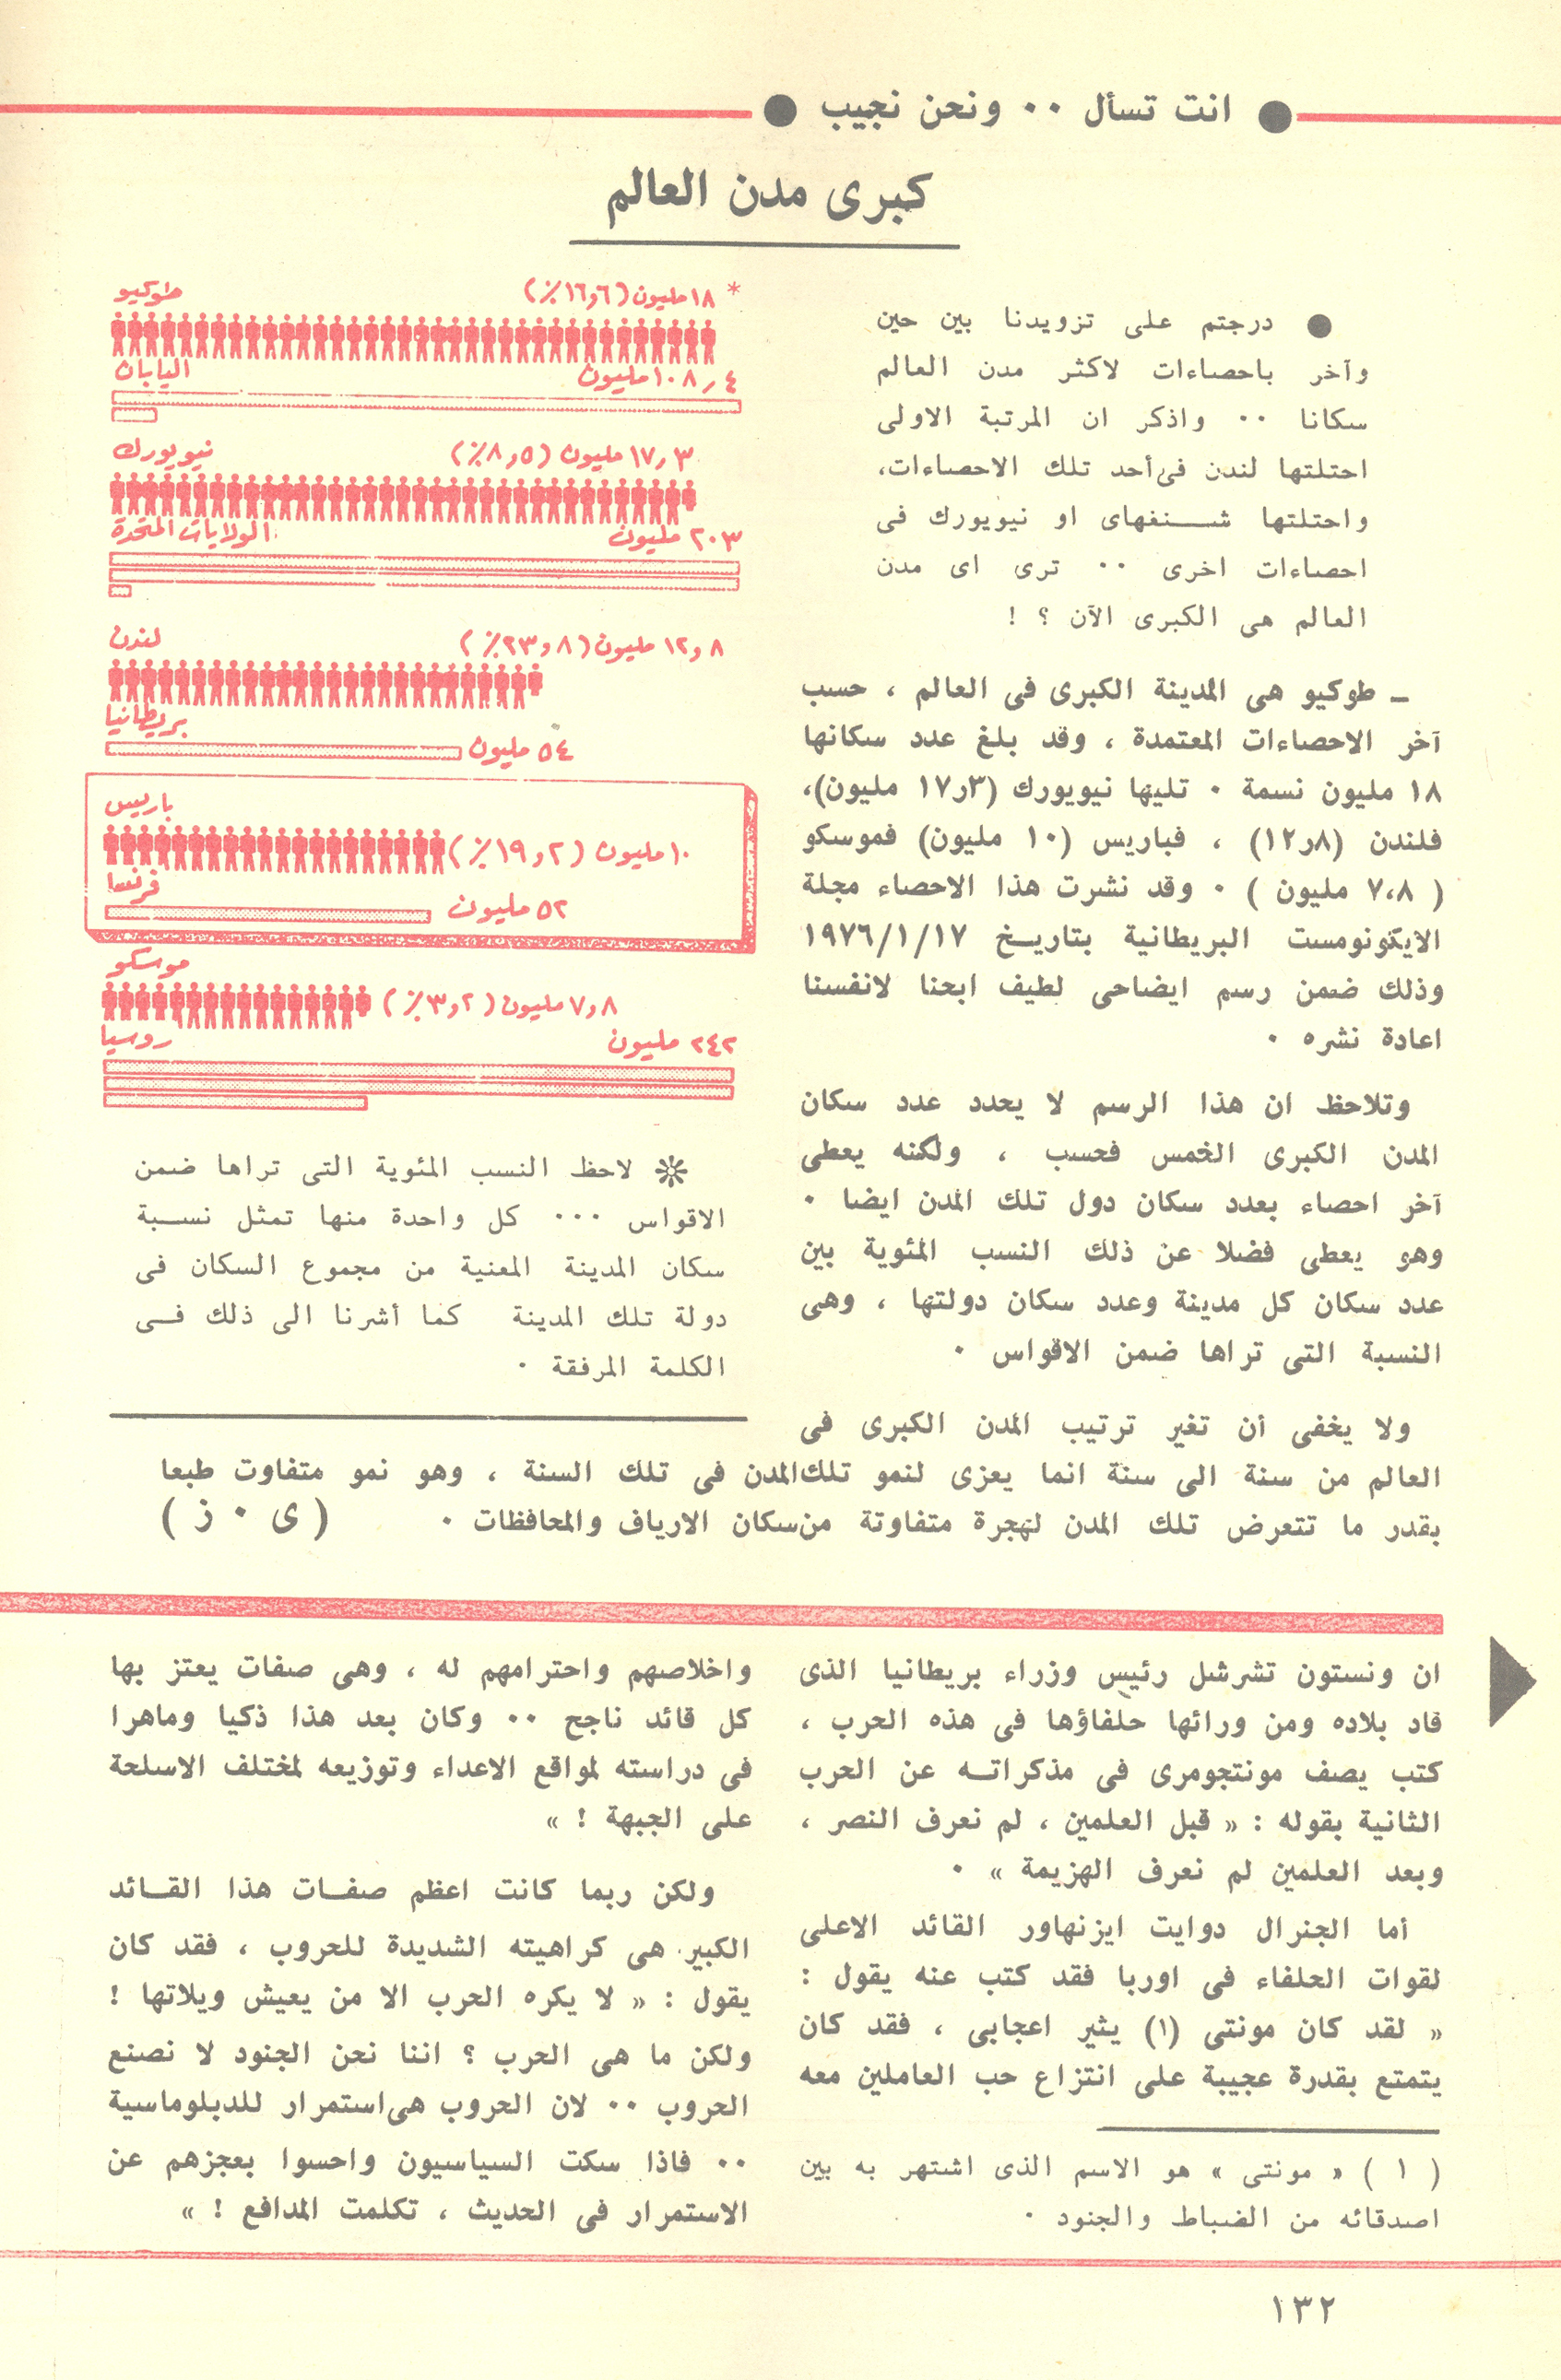 ● انت تسأل ٠٠ ونحن نجيب ●
كبرى مدن العالم
● درجتم على تزويدنا بين حين
وآخر باحصاءات لاكثر مدن العالم
سكانا ٠٠ واذكر ان المرتبة الاولى
احتلتها لندن فى أحد تلك الاحصاءات،
واحتلتها شنغهاى او نيويورك فى
احصاءات اخرى ٠٠ ترى اى مدن
العالم هى الكبرى الآن ؟ !
ـ طوكيو هى المدينة الكبرى فى العالم ، حسب
آخر الاحصاءات المعتمدة ، وقد بلغ عدد سكانها
١٨ مليون نسمة ٠ تليها نيويورك (٣ر١٧ مليون)،
فلندن (٨ر١٢) ، فباريس (١٠ مليون) فموسكو
( ٧،٨ مليون ) ٠ وقد نشرت هذا الاحصاء مجلة
الايكونومست البريطانية بتاريخ ١٩٧٦/١/١٧
وذلك ضمن رسم ايضاحى لطيف ابحنا لانفسنا
اعادة نشره ٠
وتلاحظ ان هذا الرسم لا يحدد عدد سكان
المدن الكبرى الخمس فحسب ، ولكنه يعطى
آخر احصاء بعدد سكان دول تلك المدن ايضا ٠
وهو يعطى فضلا عن ذلك النسب المئوية بين
عدد سكان كل مدينة وعدد سكان دولتها ، وهى
النسبة التى تراها ضمن الاقواس ٠
ولا يخفى أن تغير ترتيب المدن الكبرى فى
العالم من سنة الى سنة انما يعزى لنمو تلك المدن فى تلك السنة ، وهو نمو متفاوت طبعا
بقدر ما تتعرض تلك المدن لهجرة متفاوتة من سكان الارياف والمحافظات ٠ ( ى ٠ ز )
* ١٨ مليون (٦ر١٦ ٪) طوكيو
٤ر١٠٨ مليون اليابان
٣ر١٧ مليون (٥ر٨ ٪) نيويورك
٢٠٣ مليون الولايات المتحدة
٨ر١٢ مليون (٨ر٢٣ ٪) لندن
بريطانيا
٥٤ مليون
باريس
١٠ مليون (٢ر١٩ ٪)
فرنسا
٥٢ مليون
موسكو
٨ر٧ مليون (٢ر٣ ٪)
٢٤٢ مليون روسيا
❊ لاحظ النسب المئوية التى تراها ضمن
الاقواس ٠٠٠ كل واحدة منها تمثل نسبة
سكان المدينة المعنية من مجموع السكان فى
دولة تلك المدينة كما أشرنا الى ذلك فى
الكلمة المرفقة ٠
ان ونستون تشرشل رئيس وزراء بريطانيا الذى
قاد بلاده ومن ورائها حلفاؤها فى هذه الحرب ،
كتب يصف مونتجومرى فى مذكراته عن الحرب
الثانية بقوله : « قبل العلمين ، لم نعرف النصر ،
وبعد العلمين لم نعرف الهزيمة » ٠
أما الجنرال دوايت ايزنهاور القائد الاعلى
لقوات الحلفاء فى اوربا فقد كتب عنه يقول :
« لقد كان مونتى (١) يثير اعجابى ، فقد كان
يتمتع بقدرة عجيبة على انتزاع حب العاملين معه
( ١ ) « مونتى » هو الاسم الذى اشتهر به بين
اصدقائه من الضباط والجنود ٠
واخلاصهم واحترامهم له ، وهى صفات يعتز بها
كل قائد ناجح ٠٠ وكان بعد هذا ذكيا وماهرا
فى دراسته لمواقع الاعداء وتوزيعه لمختلف الاسلحة
على الجبهة ! »
ولكن ربما كانت اعظم صفات هذا القائد
الكبير هى كراهيته الشديدة للحروب ، فقد كان
يقول : « لا يكره الحرب الا من يعيش ويلاتها !
ولكن ما هى الحرب ؟ اننا نحن الجنود لا نصنع
الحروب ٠٠ لان الحروب هى استمرار للدبلوماسية
٠٠ فاذا سكت السياسيون واحسوا بعجزهم عن
الاستمرار فى الحديث ، تكلمت المدافع ! »
١٣٢